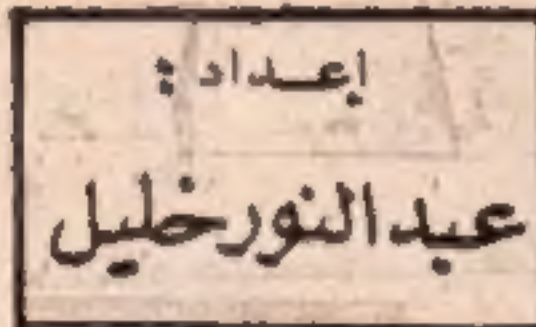 إعداد :
عبدالنور خليل